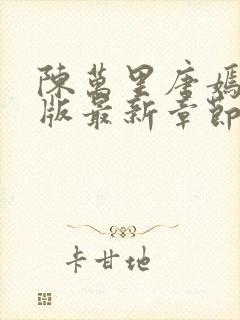 陳萬里唐嫣
版最新章節
卡甘地